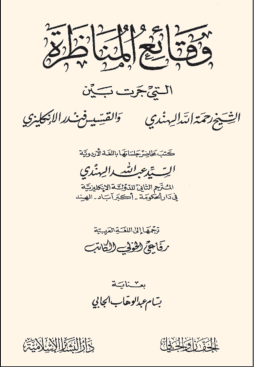 وقائع المناظرة
التي جرت بين
الشيخ رحمة الله الهندي والقسيس فندر الإنكليزي
كتب محاضر جلساتها باللغة الأردوية
السيد عبد الله الهندي
المترجم الثاني للدولة الإنكليزية
في دار الحكومة - أكبر آباد - الهند
ترجمها إلى اللغة العربية
رفاعي الخولي الكاتب
بعناية
بسام عبد الوهاب الجابي
الجفان والجابي دار البشائر الإسلامية